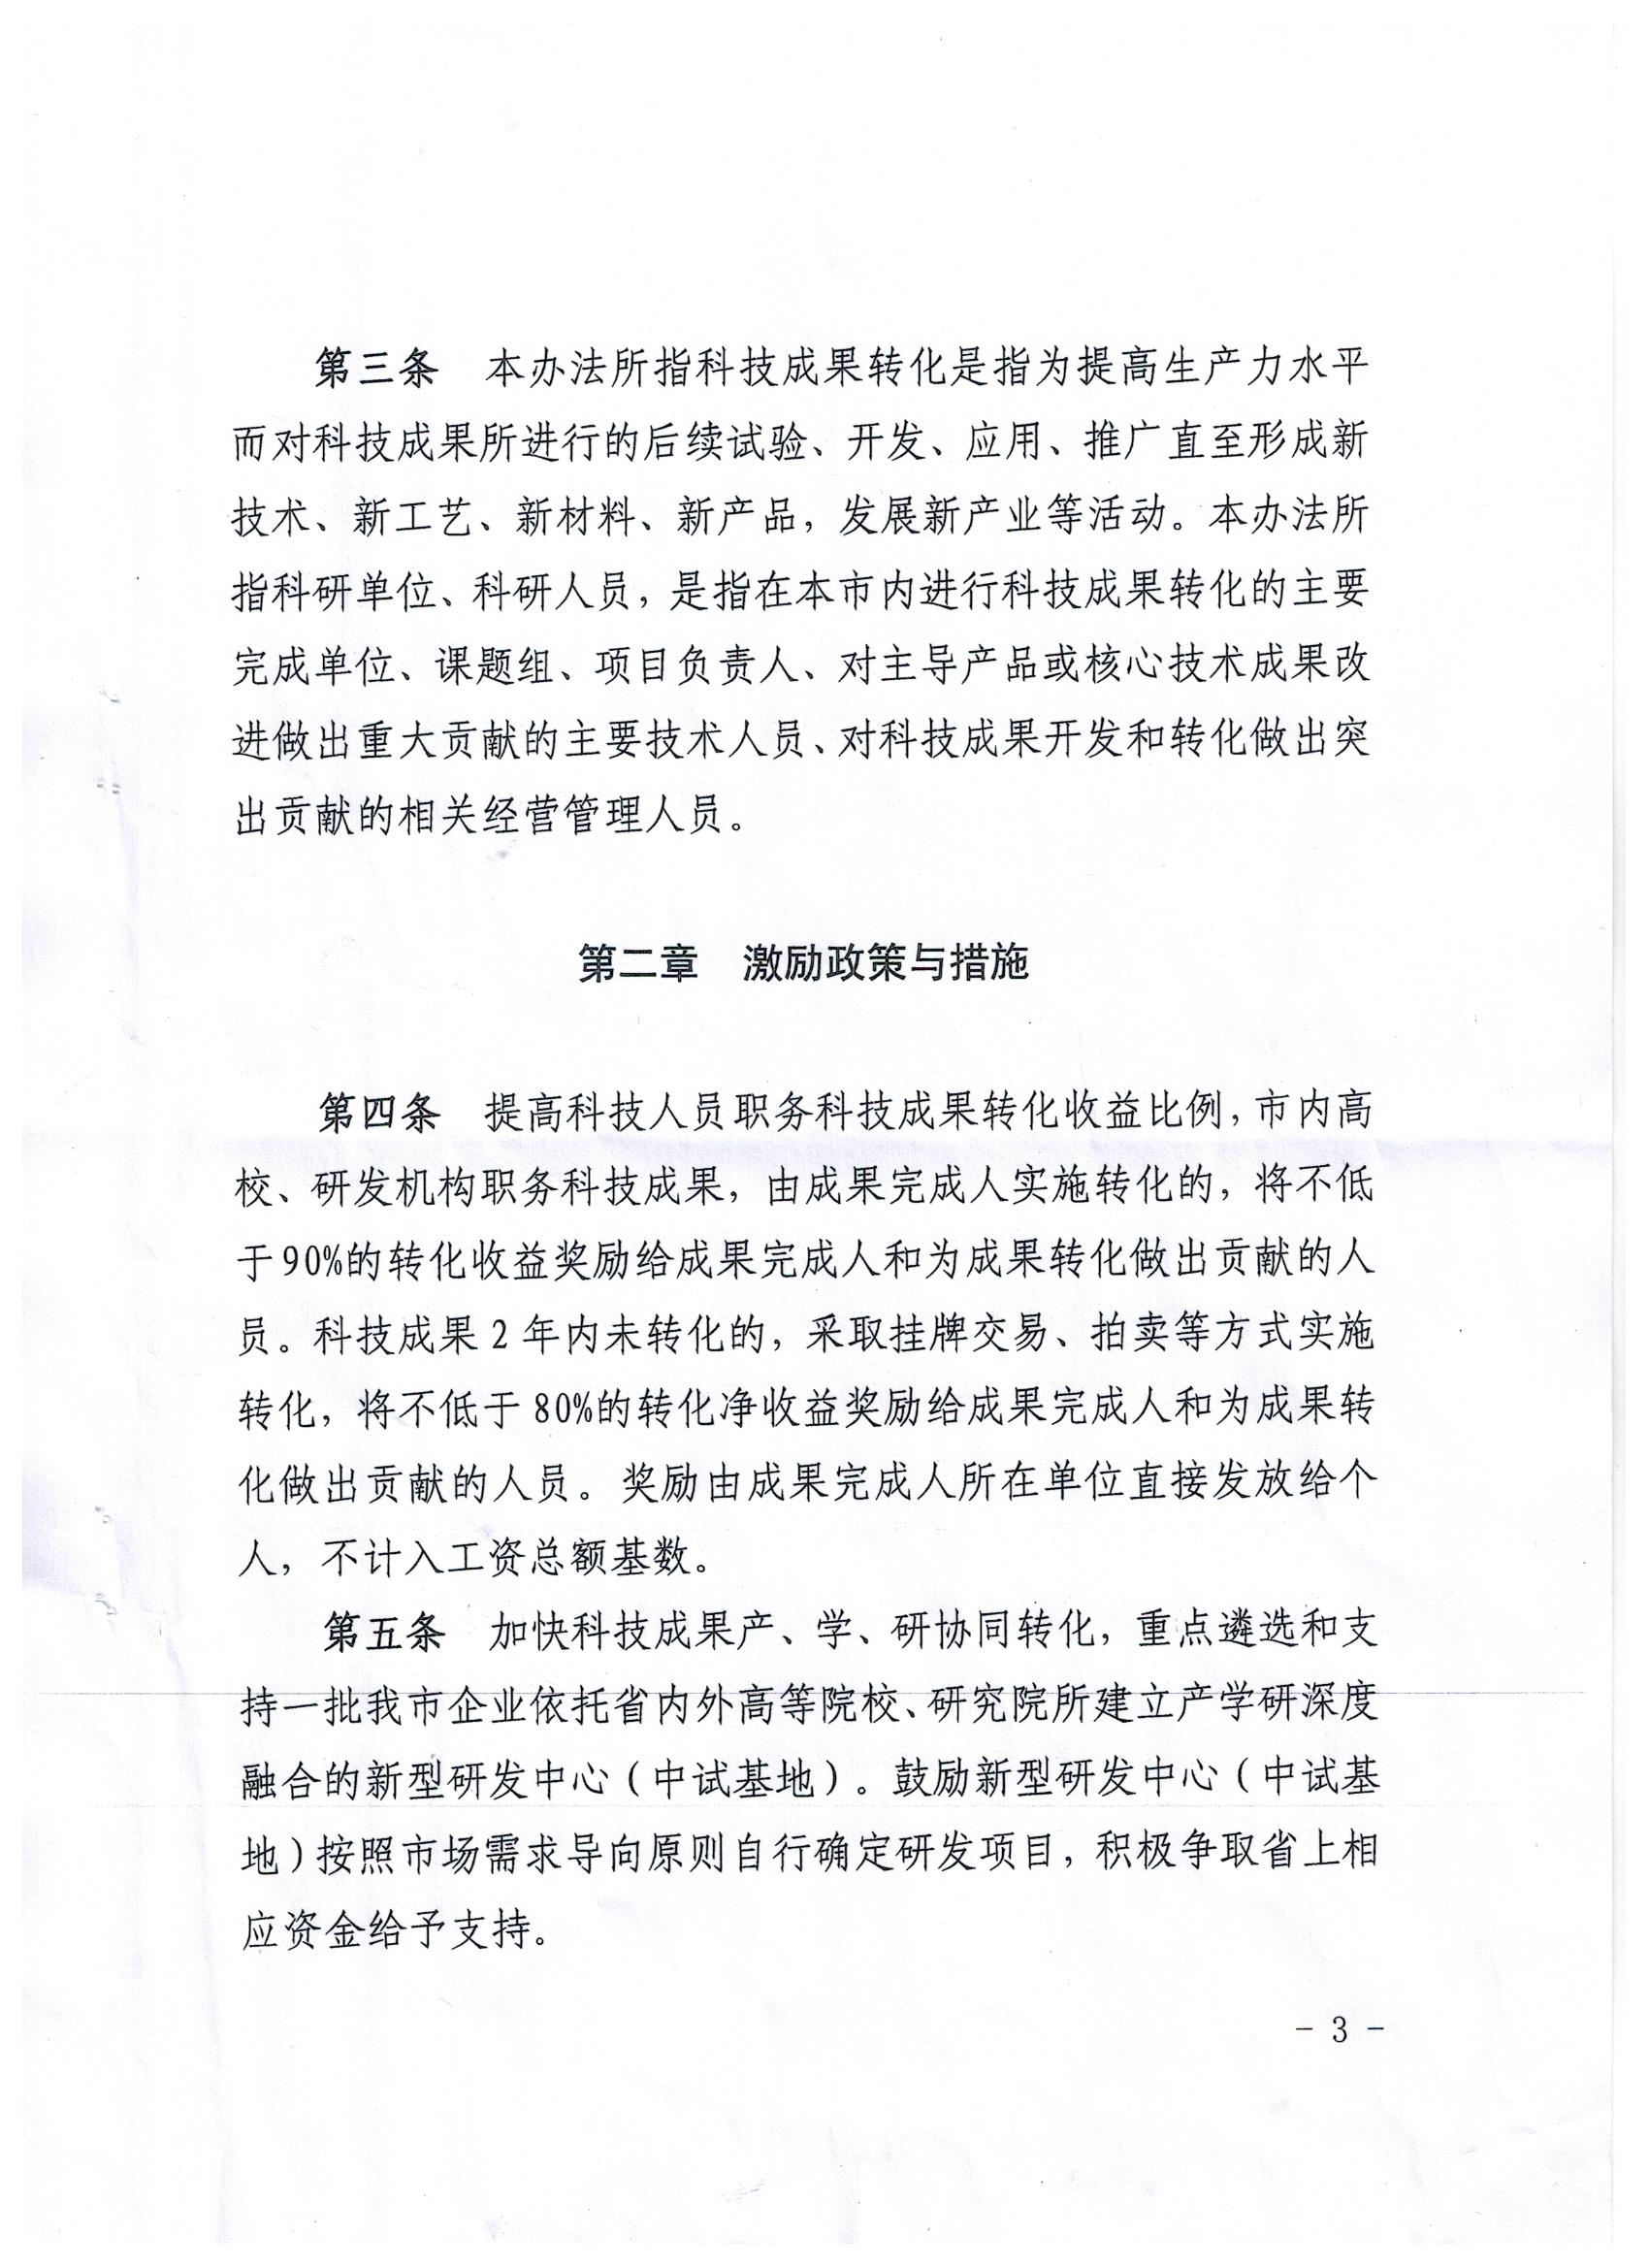 第三条　本办法所指科技成果转化是指为提高生产力水平
而对科技成果所进行的后续试验、开发、应用、推广直至形成新
技术、新工艺、新材料、新产品，发展新产业等活动。本办法所
指科研单位、科研人员，是指在本市内进行科技成果转化的主要
完成单位、课题组、项目负责人、对主导产品或核心技术成果改
进做出重大贡献的主要技术人员、对科技成果开发和转化做出突
出贡献的相关经营管理人员。
第二章　激励政策与措施
第四条　提高科技人员职务科技成果转化收益比例，市内高
校、研发机构职务科技成果，由成果完成人实施转化的，将不低
于90%的转化收益奖励给成果完成人和为成果转化做出贡献的人
员。科技成果2年内未转化的，采取挂牌交易、拍卖等方式实施
转化，将不低于80%的转化净收益奖励给成果完成人和为成果转
化做出贡献的人员。奖励由成果完成人所在单位直接发放给个
人，不计入工资总额基数。
第五条　加快科技成果产、学、研协同转化，重点遴选和支
持一批我市企业依托省内外高等院校、研究院所建立产学研深度
融合的新型研发中心（中试基地）。鼓励新型研发中心（中试基
地）按照市场需求导向原则自行确定研发项目，积极争取省上相
应资金给予支持。
- 3 -